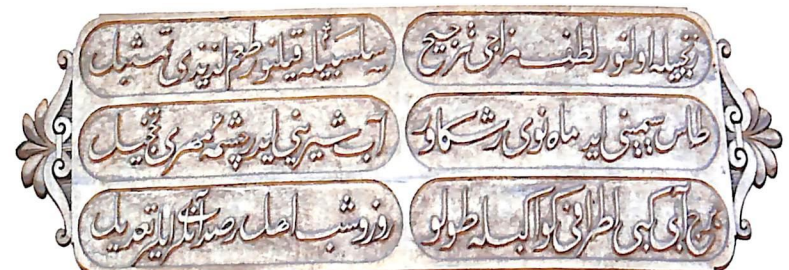 زنجبیله اولنور لطف مزاجی ترجیح سلسبیله قیلنور طعم لذیذی تمثیل
طاس سیمینی ایدر ماه نوی رشک آور آب شیرینی ایدر چشمهٔ مصری تخجیل
برج آبی کبی اطرافی کواکبله طولو روز و شب اهل رصد ایلر تعدیل